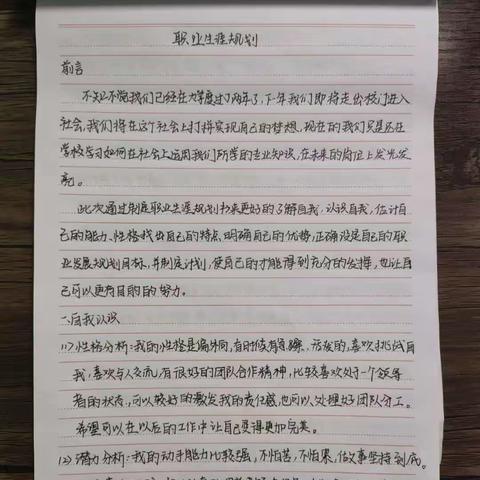 职业生涯规划
前言
不知不觉我们已经在大学度过了两年了,下一年我们即将走出校门进入
社会,我们将在这个社会上打拼实现自己的梦想,现在的我们只是还在
学校学习如何在社会上运用我们所学的专业知识,在未来的岗位上发光发
亮。
此次通过制定职业生涯规划书来更好的了解自我,认识自我,估计自
己的能力、性格找出自己的特点,明确自己的优势,正确设定自己的职
业发展规划目标,并制定计划,使自己的才能得到充分的发挥,也让自
己可以更有目的的努力。
一、自我认识
(1)性格分析:我的性格是偏外向,有时候有急躁、活泼的,喜欢挑战自
我,喜欢与人交流,有很好的团队合作精神,比较喜欢处于一个领导
者的状态,可以较好的激发我的责任感,也可以处理好团队分工。
希望可以在以后的工作中让自己变得更加完美。
(2)潜力分析:我的动手能力比较强,不怕苦,不怕累,做事坚持到底。